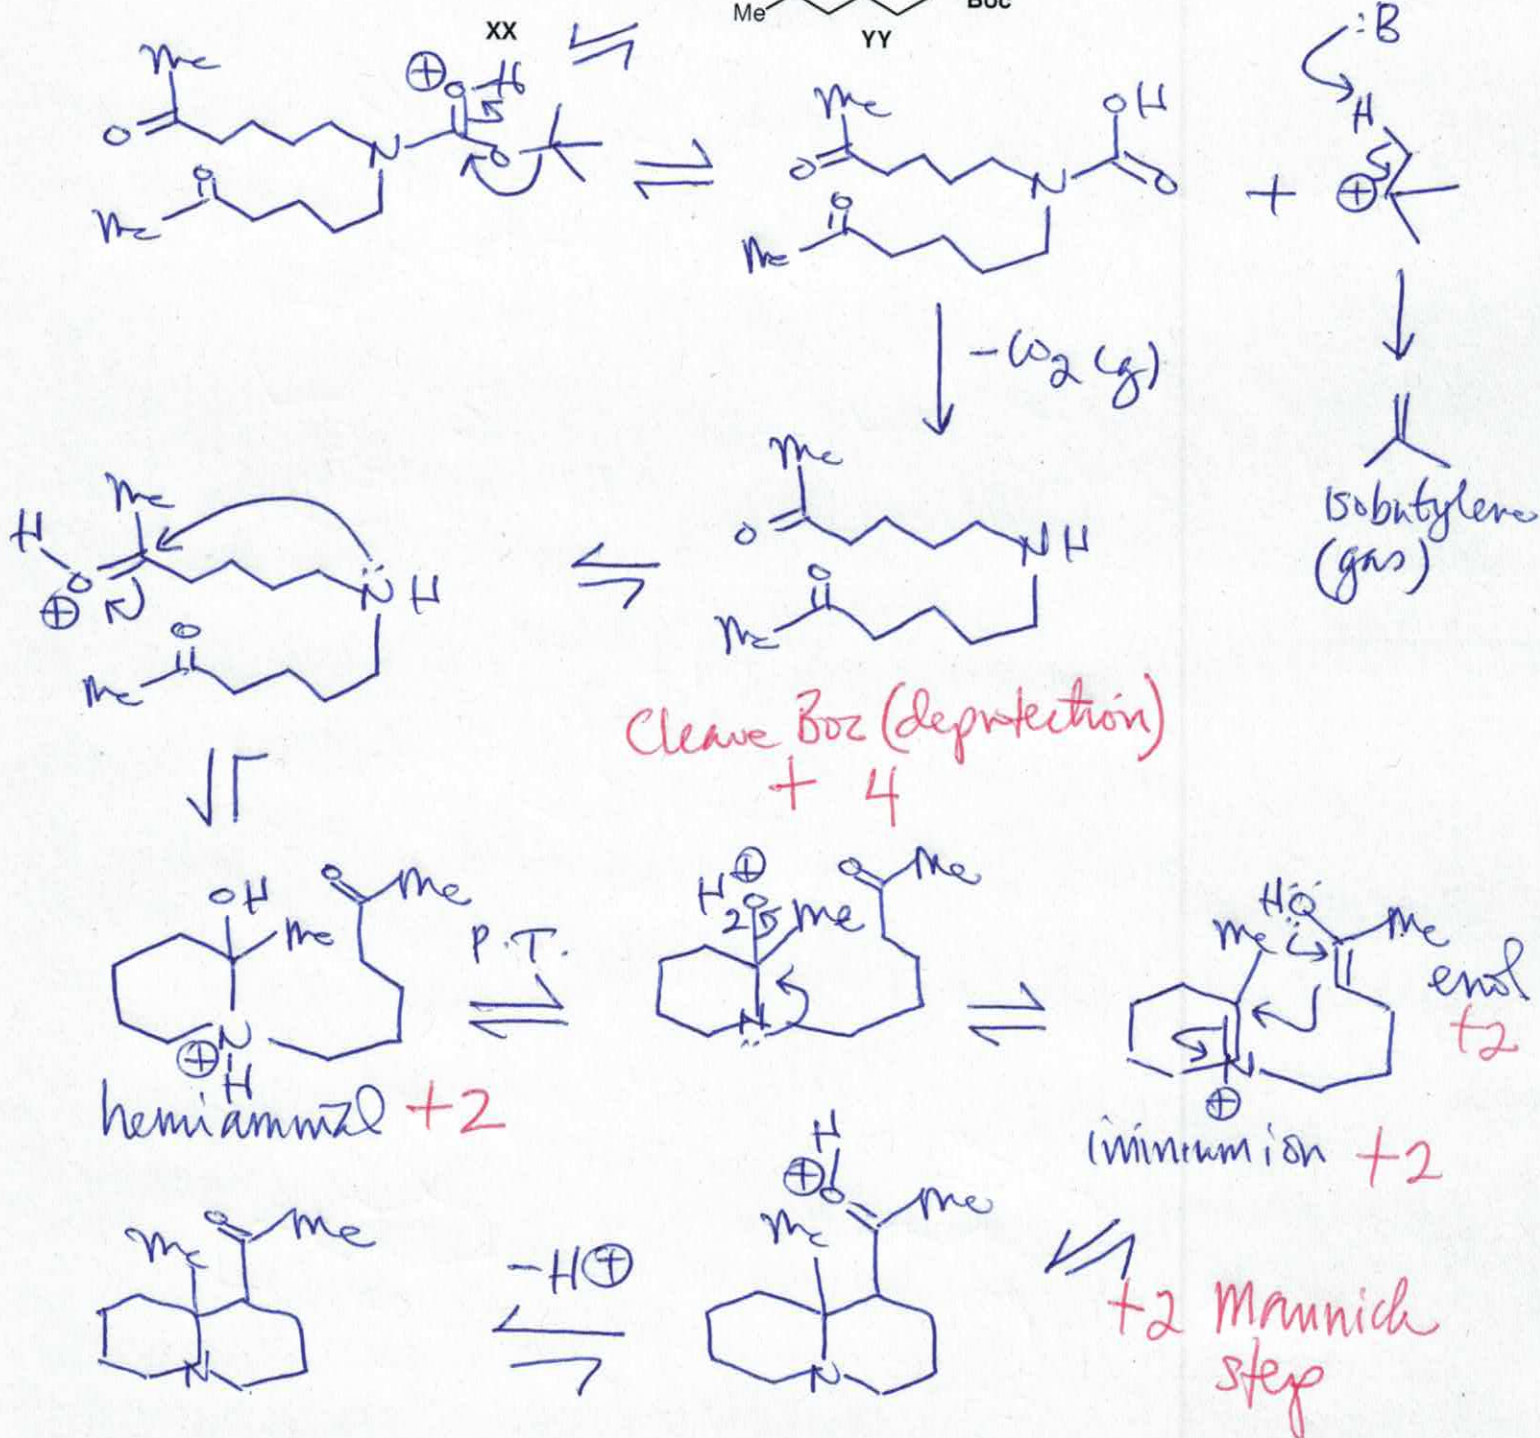 Me
Boc
XX
YY
:B
Me
⊕
O-H
O
N
O
O
Me
Me
OH
O
N
O
O
Me
+
H
⊕
-CO2 (g)
Me
O
NH
O
Me
isobutylene
(gas)
Me
H
O
⊕
NH
O
Me
Cleave Boc (deprotection)
+ 4
OH
O
Me
Me
N
⊕
H
hemiaminal +2
P.T.
H2O
⊕
Me
O
Me
N
HO
Me
Me
N
⊕
enol
+2
iminium ion +2
Me
O
Me
N
-H⊕
H
⊕
O
Me
Me
N
+2 Mannich
step